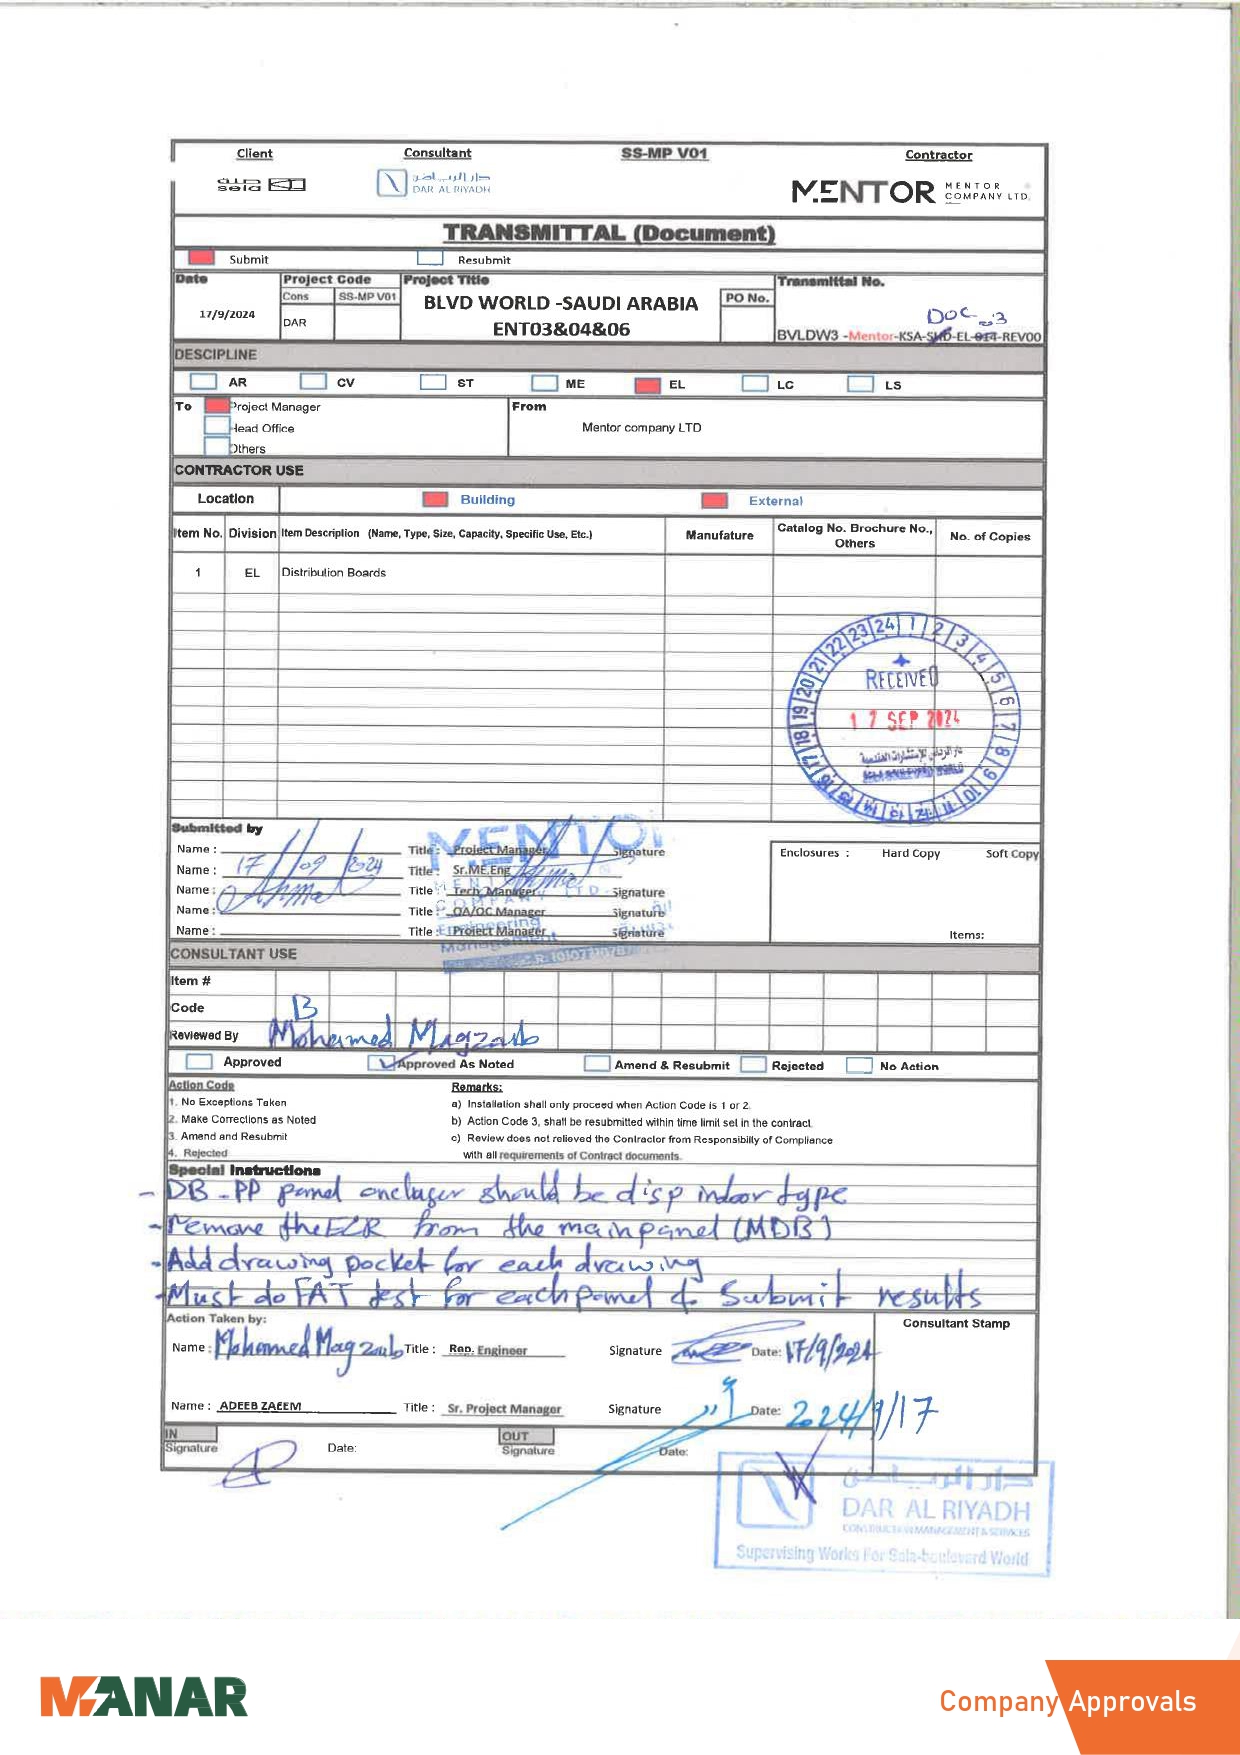 Client
Consultant
SS-MP V01
Contractor
صلة
sela
دار الرياض
DAR AL RIYADH
MENTOR
MENTOR
COMPANY LTD.
TRANSMITTAL (Document)
Submit
Resubmit
Date
Project Code
Project Title
Transmittal No.
Cons
SS-MP V01
PO No.
17/9/2024
DAR
BLVD WORLD -SAUDI ARABIA
ENT03&04&06
DOC-03
BVLDW3 -Mentor-KSA-SHD-EL-014-REV00
DESCIPLINE
AR CV ST ME EL LC LS
To Project Manager
From
Head Office
Mentor company LTD
Others
CONTRACTOR USE
Location Building External
Item No. Division Item Description (Name, Type, Size, Capacity, Specific Use, Etc.) Manufature Catalog No. Brochure No., Others No. of Copies
1 EL Distribution Boards
RECEIVED
17 SEP 2024
Submitted by
Name : Title : Project Manager Signature
Name : 17/09/2024 Title : Sr.ME.Eng
Name : Ahmed Title : Tech Manager Signature
Name : Title : QA/QC Manager Signature
Name : Title : Project Manager Signature
MENTOR
Engineering
Management
Enclosures : Hard Copy Soft Copy
Items:
CONSULTANT USE
Item #
Code B
Reviewed By Mohamed Magzoub
Approved Approved As Noted Amend & Resubmit Rejected No Action
Action Code
Remarks:
1. No Exceptions Taken
a) Installation shall only proceed when Action Code is 1 or 2.
2. Make Corrections as Noted
b) Action Code 3, shall be resubmitted within time limit set in the contract.
3. Amend and Resubmit
c) Review does not relieved the Contractor from Responsibilly of Compliance
4. Rejected
with all requirements of Contract documents.
Special Instructions
- DB-PP panel encluser should be disp indoor type
- remove the ELR from the main panel (MDB)
- Add drawing pocket for each drawing
- Must do FAT test for each panel & Submit results
Action Taken by:
Consultant Stamp
Name : Mohamed Magzoub Title : Rep. Engineer Signature Date: 17/9/2024
Name : ADEEB ZAEEM Title : Sr. Project Manager Signature Date: 2024/9/17
IN
OUT
Signature Date:
Signature Date:
دار الرياض
DAR AL RIYADH
CONSTRUCTION MANAGEMENT & SERVICES
Supervising Works For Sela-boulevard World
MANAR
Company Approvals